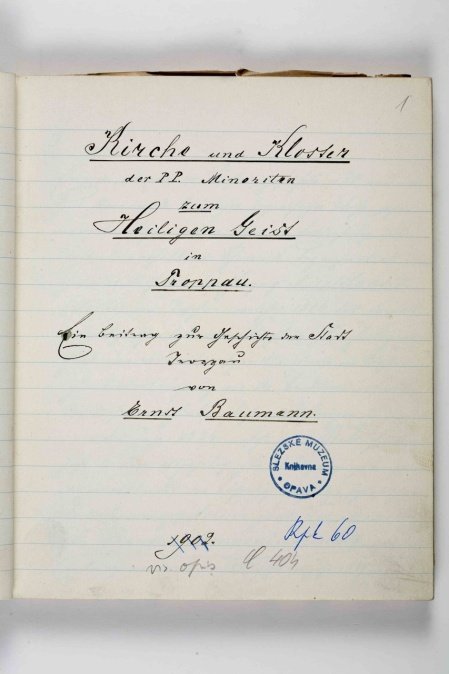 1
Kirche und Kloster
der PP. Minoriten
zum
Heiligen Geist
in
Troppau.
Ein Beitrag zur Geschichte der Stadt
Troppau
von
Ernst Baumann.
SLEZSKÉ MUZEUM
Knihovna
OPAVA
1902.
Rpk 60
404